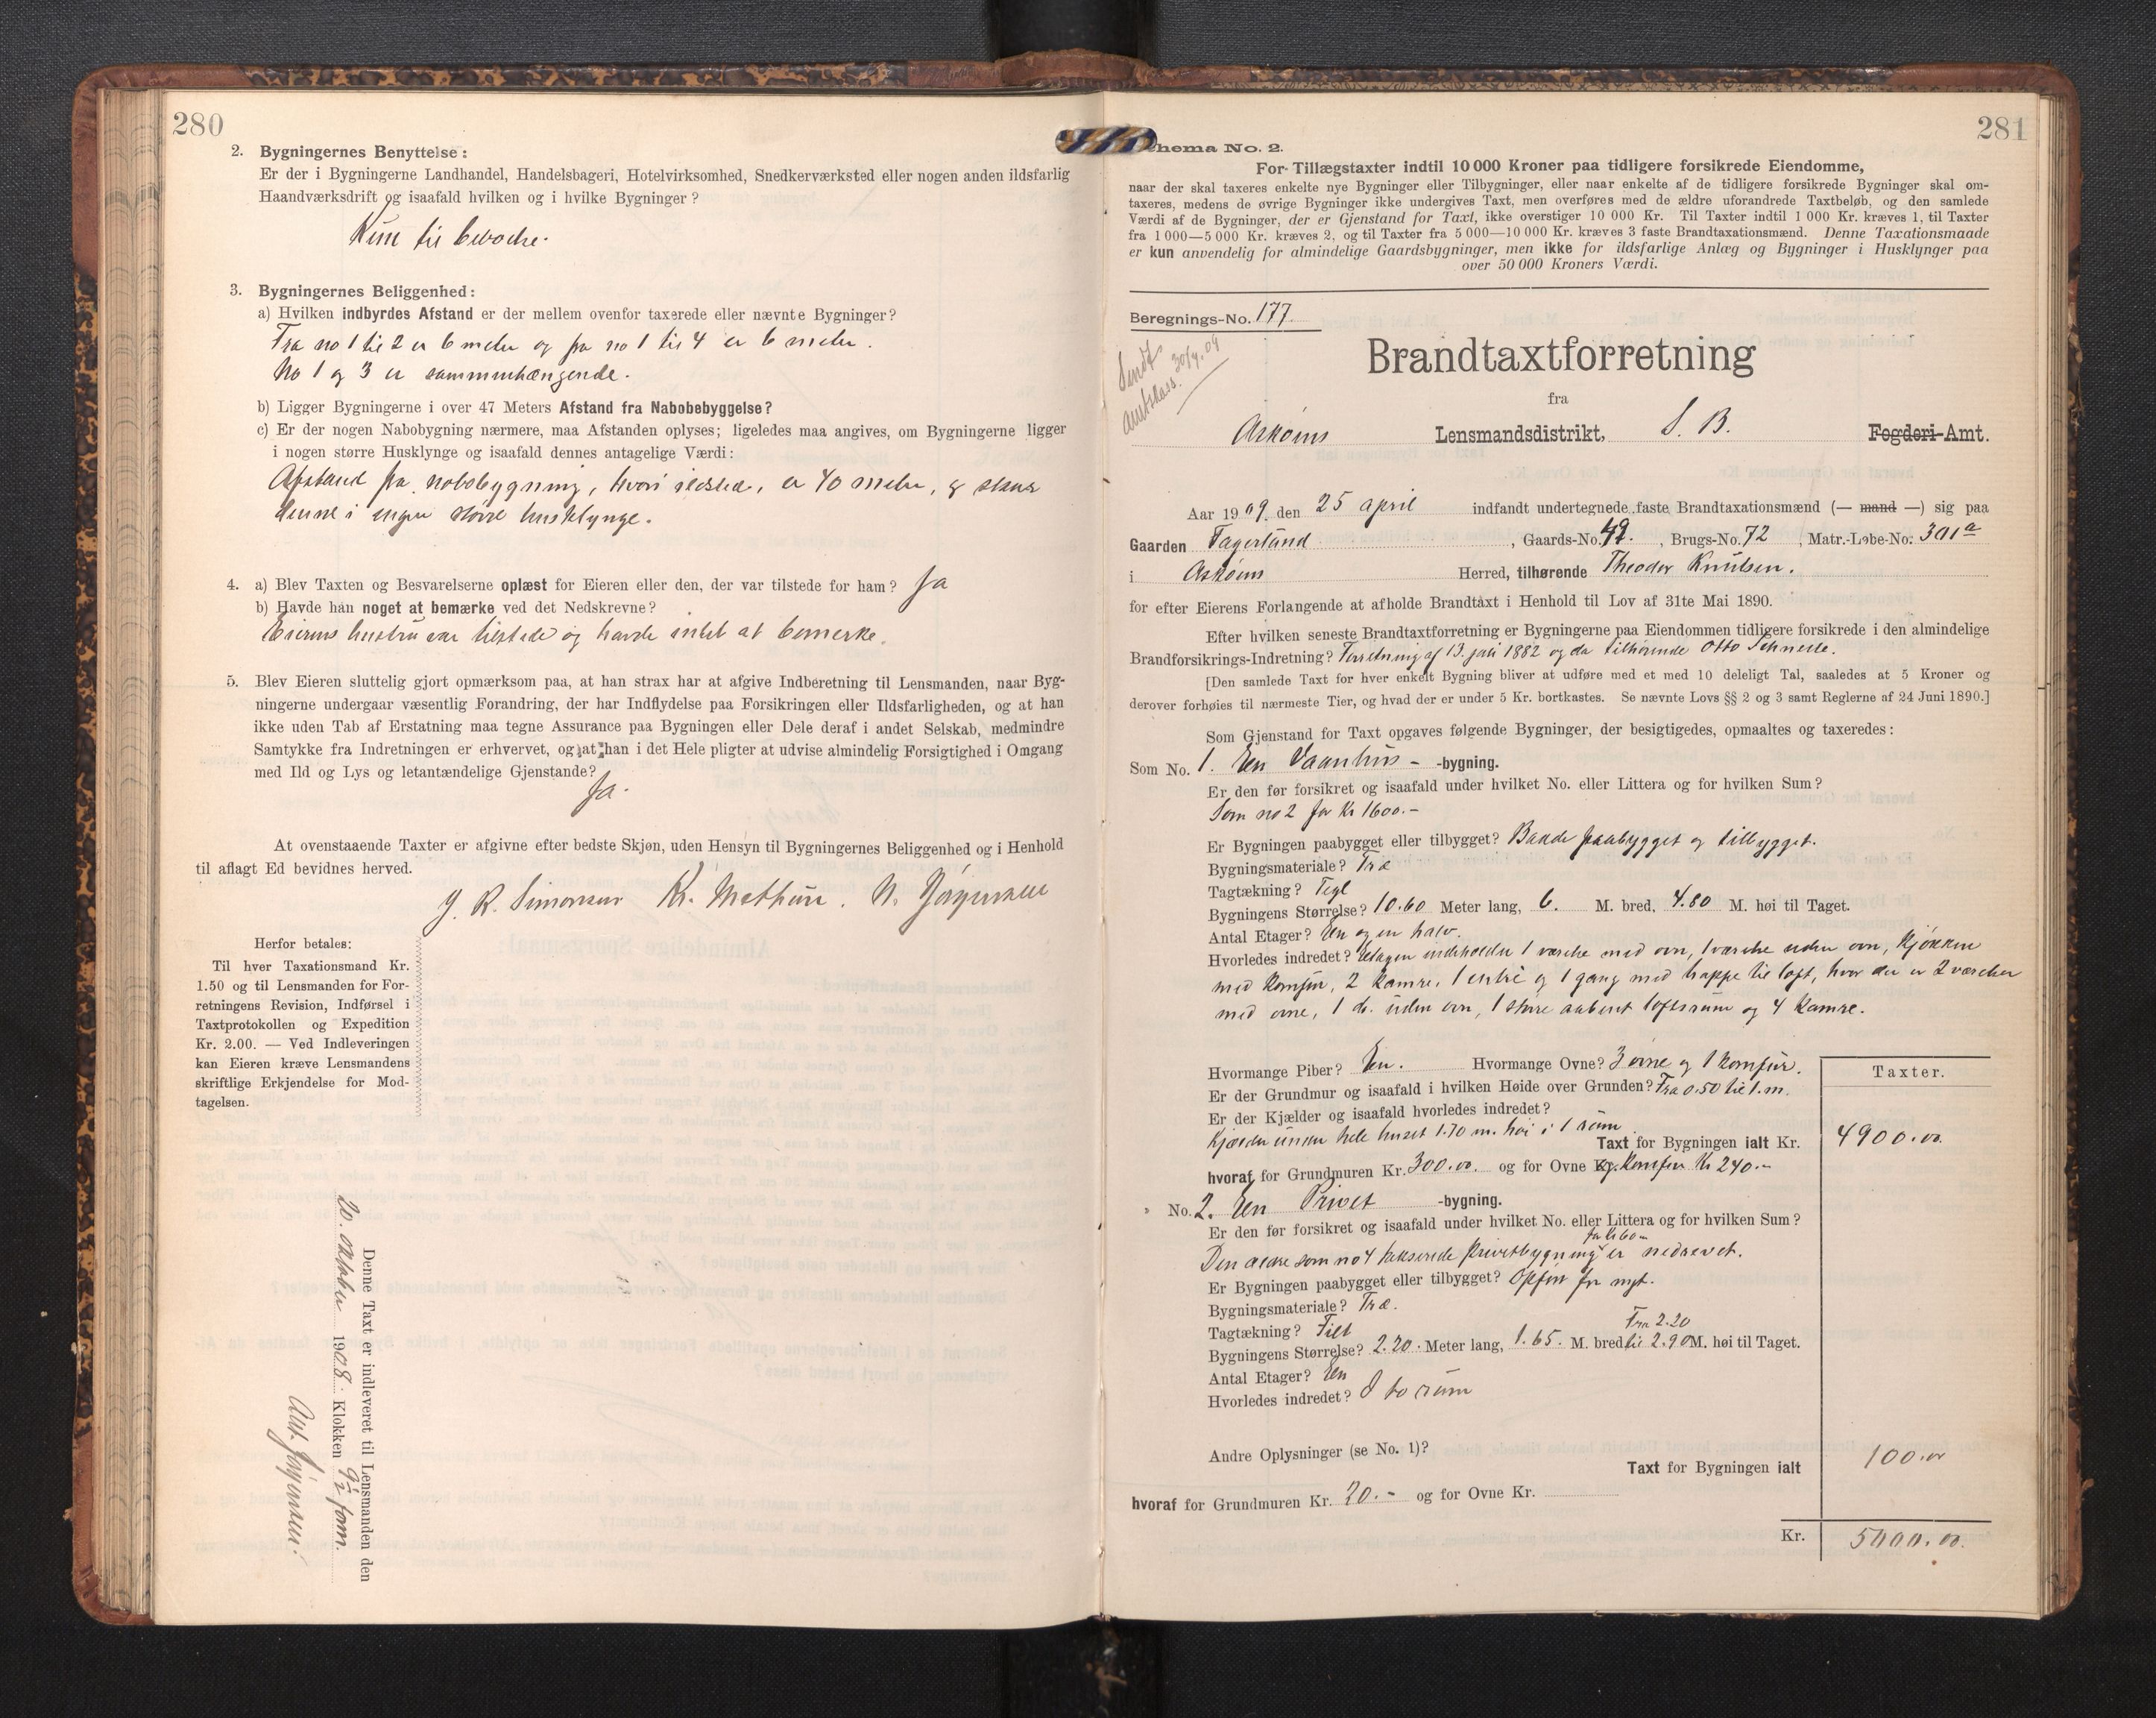 280
2. Bygningernes Benyttelse:
Er der i Bygningerne Landhandel, Handelsbageri, Hotelvirksomhed, Snedkerværksted eller nogen anden ildsfarlig
Haandværksdrift og isaafald hvilken og i hvilke Bygninger?
Kun til beboelse.
3. Bygningernes Beliggenhed:
a) Hvilken indbyrdes Afstand er der mellem ovenfor taxerede eller nævnte Bygninger?
Fra no 1 til 2 er 6 meter og fra no 1 til 4 er 6 meter.
No 1 og 3 er sammenhængende.
b) Ligger Bygningerne i over 47 Meters Afstand fra Nabobebyggelse?
c) Er der nogen Nabobygning nærmere, maa Afstanden oplyses; ligeledes maa angives, om Bygningerne ligger
i nogen større Husklynge og isaafald dennes antagelige Værdi:
Afstand fra nabobygning, hvori ildsted, er 40 meter, og staar
denne i ingen större husklynge.
4. a) Blev Taxten og Besvarelserne oplæst for Eieren eller den, der var tilstede for ham? Ja
b) Havde han noget at bemærke ved det Nedskrevne?
Eierens hustru var tilstede og havde intet at bemerke.
5. Blev Eieren sluttelig gjort opmærksom paa, at han strax har at afgive Indberetning til Lensmanden, naar Byg-
ningerne undergaar væsentlig Forandring, der har Indflydelse paa Forsikringen eller Ildsfarligheden, og at han
ikke uden Tab af Erstatning maa tegne Assurance paa Bygningen eller Dele deraf i andet Selskab, medmindre
Samtykke fra Indretningen er erhvervet, og at han i det Hele pligter at udvise almindelig Forsigtighed i Omgang
med Ild og Lys og letantændelige Gjenstande?
Ja.
At ovenstaaende Taxter er afgivne efter bedste Skjøn, uden Hensyn til Bygningernes Beliggenhed og i Henhold
til aflagt Ed bevidnes herved.
J. R. Simonsen Kr. Mathisen. N. Jørgensen
Herfor betales:
Til hver Taxationsmand Kr.
1.50 og til Lensmanden for For-
retningens Revision, Indførsel i
Taxtprotokollen og Expedition
Kr. 2.00. — Ved Indleveringen
kan Eieren kræve Lensmandens
skriftlige Erkjendelse for Mod-
tagelsen.
Denne Taxt er indleveret til Lensmanden den
20. oktober 1908. Klokken 9½ form.
Jørgensen.
281
hema No. 2.
For Tillægstaxter indtil 10 000 Kroner paa tidligere forsikrede Eiendomme,
naar der skal taxeres enkelte nye Bygninger eller Tilbygninger, eller naar enkelte af de tidligere forsikrede Bygninger skal om-
taxeres, medens de øvrige Bygninger ikke undergives Taxt, men overføres med de ældre uforandrede Taxtbeløb, og den samlede
Værdi af de Bygninger, der er Gjenstand for Taxt, ikke overstiger 10 000 Kr. Til Taxter indtil 1 000 Kr. kræves 1, til Taxter
fra 1 000—5 000 Kr. kræves 2, og til Taxter fra 5 000—10 000 Kr. kræves 3 faste Brandtaxationsmænd. Denne Taxationsmaade
er kun anvendelig for almindelige Gaardsbygninger, men ikke for ildsfarlige Anlæg og Bygninger i Husklynger paa
over 50 000 Kroners Værdi.
Beregnings-No. 177.
Sendt
amtskass. 30/4.09
Brandtaxtforretning
fra
Askøens Lensmandsdistrikt, S. B. Fogderi-Amt.
Aar 1909. den 25 april indfandt undertegnede faste Brandtaxationsmænd (— mand —) sig paa
Gaarden Fagerlund, Gaards-No. 42., Brugs-No. 72, Matr.-Løbe-No. 301a
i Askøens Herred, tilhørende Theodor Knutsen.
for efter Eierens Forlangende at afholde Brandtaxt i Henhold til Lov af 31te Mai 1890.
Efter hvilken seneste Brandtaxtforretning er Bygningerne paa Eiendommen tidligere forsikrede i den almindelige
Brandforsikrings-Indretning? Forretning af 13. juli 1882 og da tilhörende Otto
[Den samlede Taxt for hver enkelt Bygning bliver at udføre med et med 10 deleligt Tal, saaledes at 5 Kroner og
derover forhøies til nærmeste Tier, og hvad der er under 5 Kr. bortkastes. Se nævnte Lovs §§ 2 og 3 samt Reglerne af 24 Juni 1890.]
Som Gjenstand for Taxt opgaves følgende Bygninger, der besigtigedes, opmaaltes og taxeredes:
Som No. 1. En Vaanhus- -bygning.
Er den før forsikret og isaafald under hvilket No. eller Littera og for hvilken Sum?
Som no 2 for Kr 1600.-
Er Bygningen paabygget eller tilbygget? Baade paabygget og tilbygget.
Bygningsmateriale? Træ
Tagtækning? Tegl
Bygningens Størrelse? 10.60 Meter lang, 6. M. bred, 4.80 M. høi til Taget.
Antal Etager? En og en halv.
Hvorledes indredet? Etagen indeholder 1 værelse med ovn, 1 værelse uden ovn, kjøkken
med komfur, 2 kamre, 1 entré og 1 gang med trappe til loft, hvor der er 2 værelser
med ovne, 1 do. uden ovn, 1 større aabent loftsrum og 4 kamre.
Hvormange Piber? En. Hvormange Ovne? 3 ovne og 1 komfur.
Er der Grundmur og isaafald i hvilken Høide over Grunden? Fra 0.50 til 1. m.
Er der Kjælder og isaafald hvorledes indredet?
Kjælder under hele huset 1.70 m. høi i 1 rum
Taxter.
Taxt for Bygningen ialt Kr. 4900.00.
hvoraf for Grundmuren Kr. 300.00. og for Ovne og Komfur Kr 240.-
No. 2. En Privet -bygning.
Er den før forsikret og isaafald under hvilket No. eller Littera og for hvilken Sum?
for Kr 60-
Den ældre som no 4 takserede privetbygning er nedrevet.
Er Bygningen paabygget eller tilbygget? Opført fra nyt.
Bygningsmateriale? Træ.
Tagtækning? Filt
Fra 2.20
Bygningens Størrelse? 2.20. Meter lang, 1.65. M. bred til 2.90 M. høi til Taget.
Antal Etager? En
Hvorledes indredet? I to rum
Andre Oplysninger (se No. 1)?
Taxt for Bygningen ialt 100.00
hvoraf for Grundmuren Kr. 20.- og for Ovne Kr.
Kr. 5000.00.